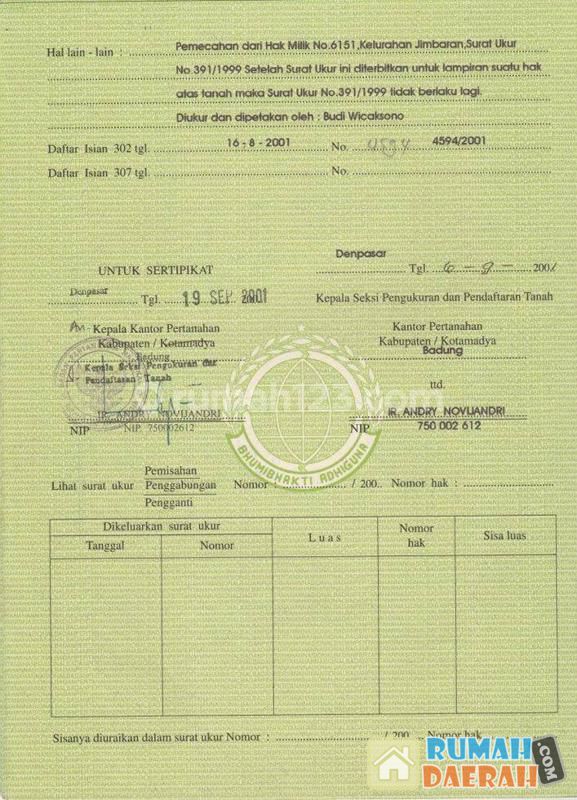 Hal lain - lain : Pemecahan dari Hak Milik No.6151,Kelurahan Jimbaran,Surat Ukur
No.391/1999 Setelah Surat Ukur ini diterbitkan untuk lampiran suatu hak
atas tanah maka Surat Ukur No.391/1999 tidak berlaku lagi.
Diukur dan dipetakan oleh : Budi Wicaksono
Daftar Isian 302 tgl. 16 - 8 - 2001 No. 4594 4594/2001
Daftar Isian 307 tgl. No.
Denpasar
UNTUK SERTIPIKAT Tgl. 6 - 9 - 2001
Denpasar Tgl. 19 SEP. 2001 Kepala Seksi Pengukuran dan Pendaftaran Tanah
An Kepala Kantor Pertanahan Kantor Pertanahan
Kabupaten / Kotamadya Kabupaten / Kotamadya
Badung Badung
Kepala Seksi Pengukuran dan
Pendaftaran Tanah
ttd.
IR. ANDRY NOVIJANDRI IR. ANDRY NOVIJANDRI
NIP 750002612 NIP 750 002 612
rumah123.com
BHUMIBHAKTI ADHIGUNA
Pemisahan
Lihat surat ukur Penggabungan Nomor : / 200.. Nomor hak :
Pengganti
Dikeluarkan surat ukur Luas Nomor hak Sisa luas
Tanggal Nomor
Sisanya diuraikan dalam surat ukur Nomor : / 200 .. Nomor hak
RUMAH
DAERAH
.COM